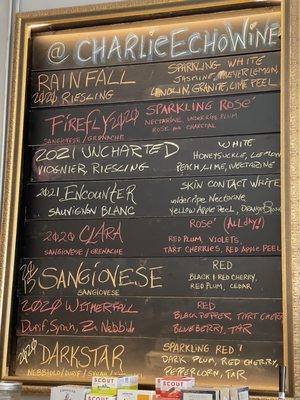 @ CHARLIEECHOWINE
RAINFALL
2020 RIESLING
SPARKLING WHITE
JASMINE, MEYER LEMON,
LANOLIN, GRANITE, LIME PEEL
FIREFLY 2020
SANGIOVESE / GRENACHE
SPARKLING ROSÉ
NECTARINE, UNDERRIPE PLUM
ROSE AND CHARCOAL
2021 UNCHARTED
VIOGNIER RIESLING
WHITE
HONEYSUCKLE, LEMON
PEACH, LIME, NECTARINE
2021 ENCOUNTER
SAUVIGNAN BLANC
SKIN CONTACT WHITE
underripe Nectarine,
Yellow Apple Peel,
2020 CLARA
SANGIOVESE / GRENACHE
ROSÉ (All day!)
RED PLUM, VIOLETS,
TART CHERRIES, RED Apple Peel
SANGIOVESE
SANGIOVESE
RED
BLACK & RED CHERRY,
RED PLUM, CEDAR
2020 WITHERFALL
Durif, Syrah, Zin Nebbiolo
RED
BLACK PEPPER, TART CHERRY
BLUEBERRY, TAR
2020 DARKSTAR
NEBBIOLO/DURIF/SYRAH
SPARKLING RED!
DARK PLUM, RED CHERRY,
PEPPERCORN, TAR
SCOUT SCOUT SCOUT SCOUT